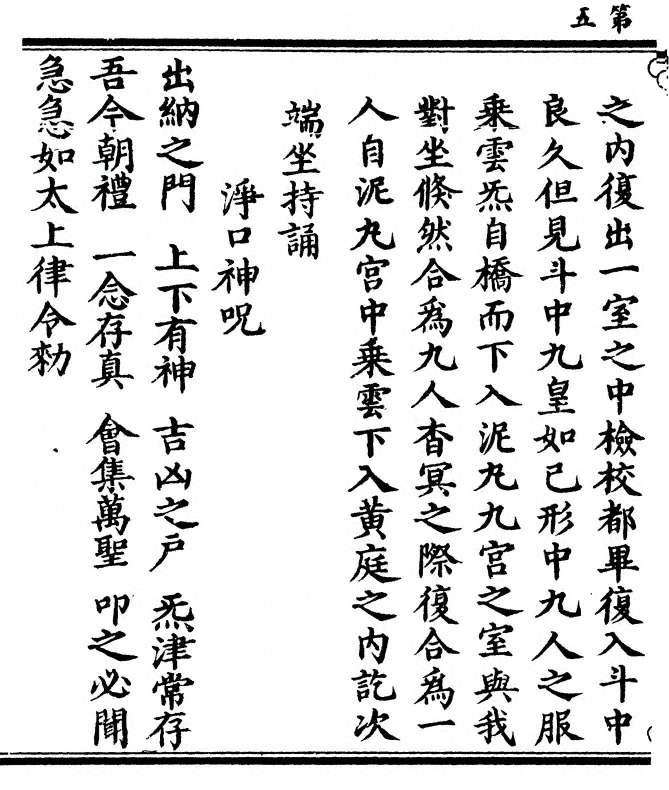 第五
之内復出一室之中檢校都畢復入斗中
良久但見斗中九皇如己形中九人之服
乘雲炁自橋而下入泥丸九宮之室與我
對坐倏然合爲九人杳冥之際復合爲一
人自泥丸宮中乘雲下入黄庭之内訖次
端坐持誦
淨口神呪
出納之門　上下有神　吉凶之戸　炁津常存
吾今朝禮　一念存真　會集萬聖　叩之必聞
急急如太上律令勑